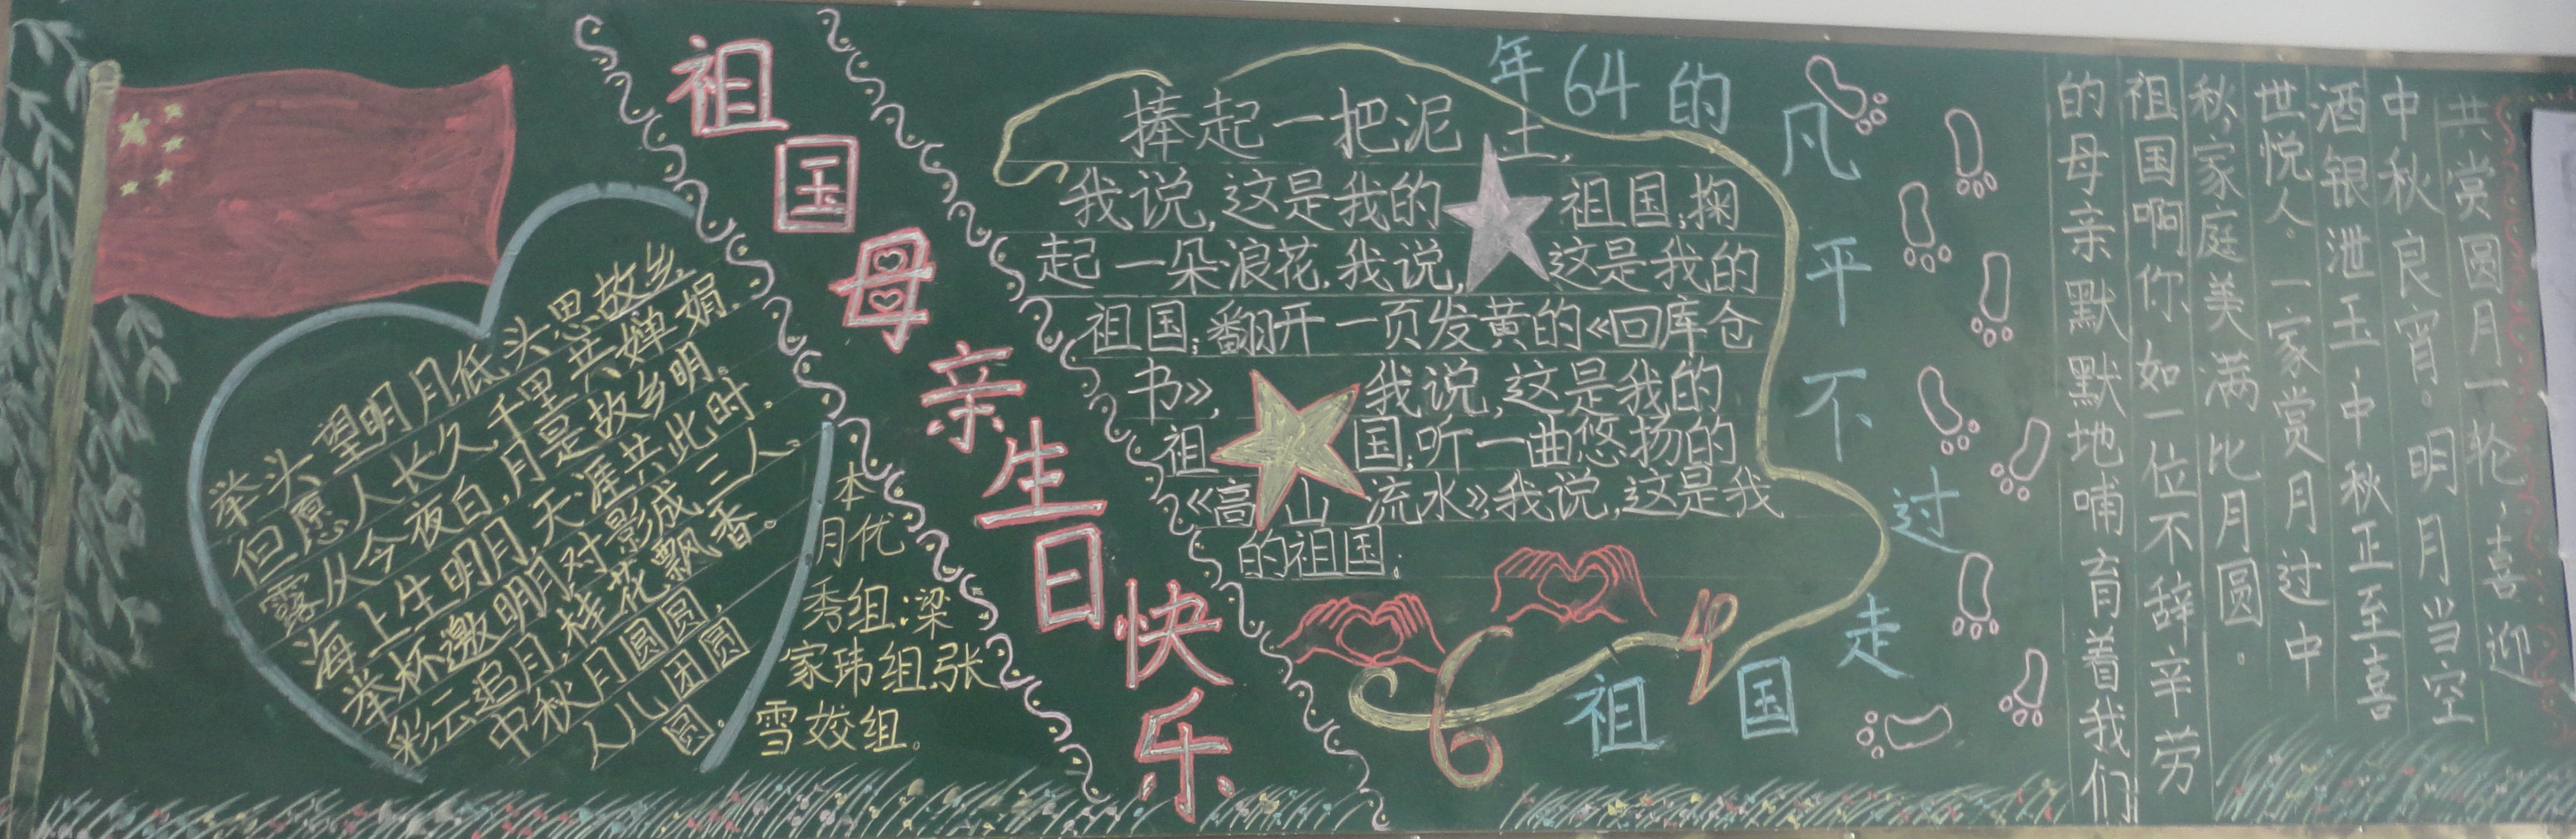 举头望明月低头思故乡
但愿人长久,千里共婵娟.
露从今夜白,月是故乡明。
海上生明月,天涯共此时.
举杯邀明月对影成三人。
彩云追月,桂花飘香。
中秋月圆圆,
人儿团圆
圆。
祖国母亲生日快乐
本
月优
秀组:梁
家玮组.张
雪姣组。
捧起一把泥土,
我说,这是我的祖国;掬
起一朵浪花,我说,这是我的
祖国;翻开一页发黄的《回库仓
书》,我说,这是我的
祖国;听一曲悠扬的
《高山流水》,我说,这是我
的祖国;
祖国走过不平凡的64年
64
共赏圆月一轮,喜迎
中秋良宵。明月当空
洒银泄玉,中秋正至喜
世悦人。一家赏月过中
秋,家庭美满比月圆.
祖国啊你如一位不辞辛劳
的母亲默默地哺育着我们